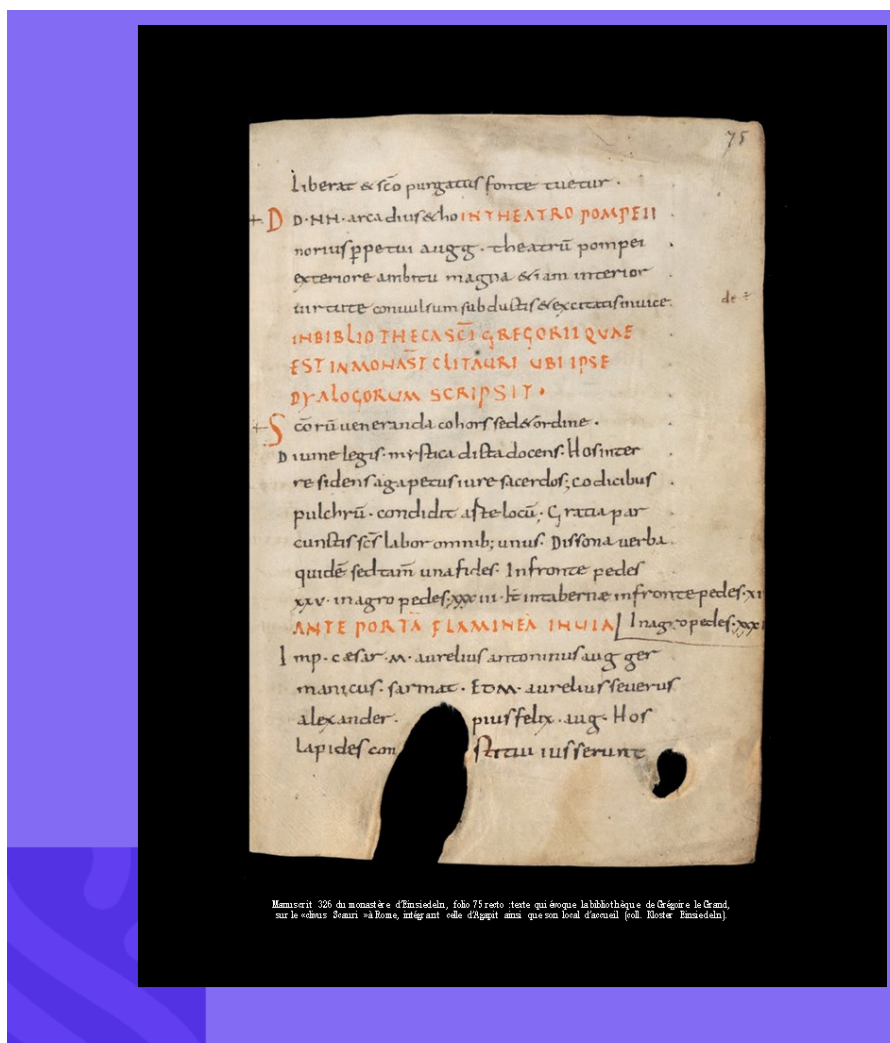 75
Liberat & sc̄o purgatus fonte tuetur ·
+ D D·NN· arcadius & ho INTHEATRO POMPEII
norius ꝑpetui augg · theatrū pompei
exteriore ambitu magna &iam interior
uirtute conuulsum subductis & excitatis inuice
de
INBIBLIOTHECA SC̄I GREGORII QUAE
EST INMONAST̄ CLITAURI UBI IPSE
DYALOGORUM SCRIPSIT ·
+ S cōrū ueneranda cohors sed& ordine ·
D iuine legis· mystica dicta docens· Hos inter
residens agapetus iure sacerdos; codicibus
pulchrū · condidit arte locū; Gratia par
cunctis sc̄s labor omnib; unus· Dissona uerba
quidē sed tam̄ una fides· Infronte pedes
xxv· inagro pedes xxxiii· It intabernae infronte pedes·
ANTE PORTĀ FLAMINEĀ INUIA Inagro pedes·
Imp· cæsar· M· aurelius antoninus aug ger
manicus· sarmat· ET·M· aurelius seuerus
alexander· pius felix · aug· Hos
lapides con stitui iusserunt
Manuscrit 326 du monastère d'Einsiedeln, folio 75 recto : texte qui évoque la bibliothèque de Grégoire le Grand,
sur le «clivus Scauri » à Rome, intégrant celle d'Agapit ainsi que son local d'accueil (coll. Kloster Einsiedeln).